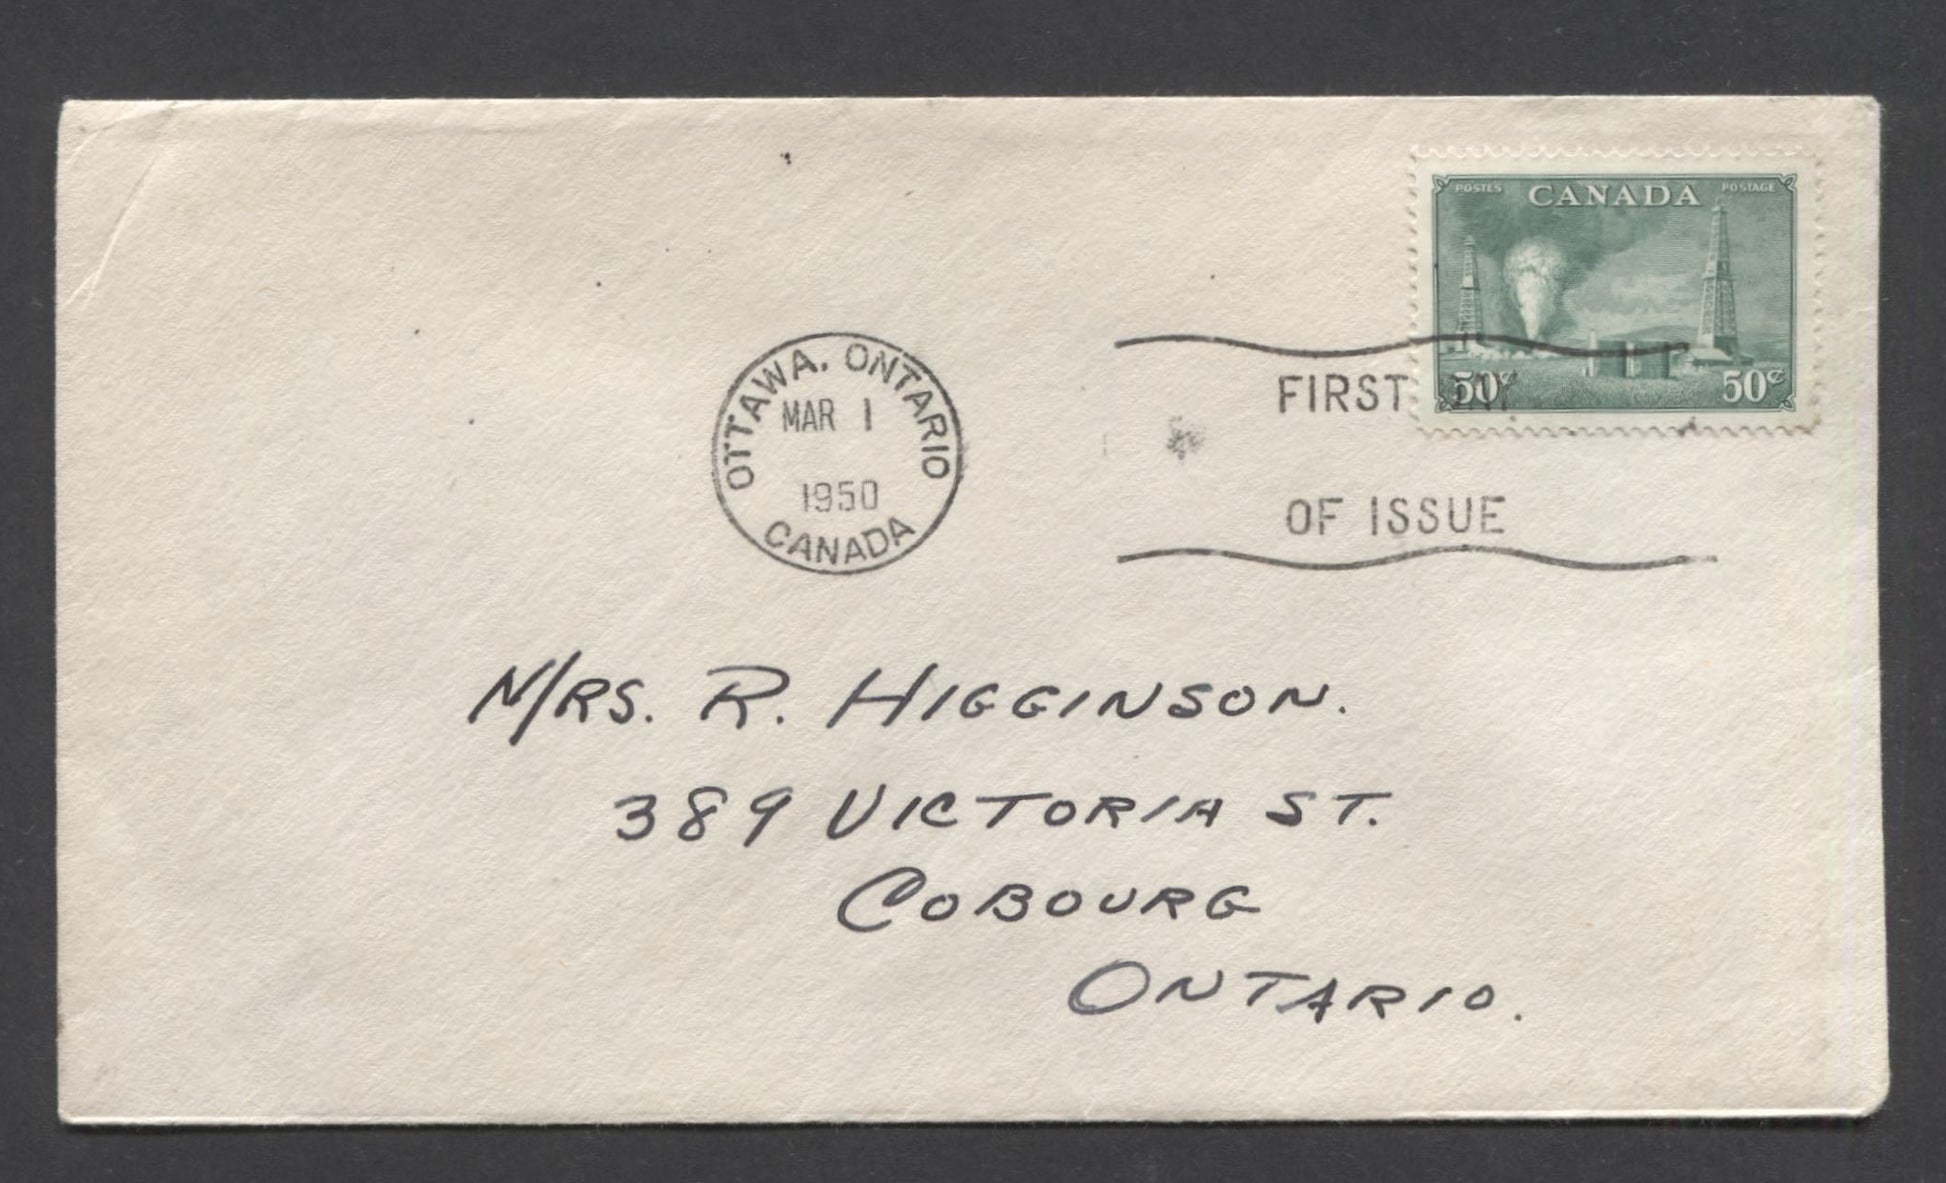 POSTES CANADA POSTAGE
50¢ 50¢
OTTAWA, ONTARIO
MAR 1
1950
CANADA
FIRST DAY
OF ISSUE
MRS. R. HIGGINSON.
389 VICTORIA ST.
COBOURG
ONTARIO.